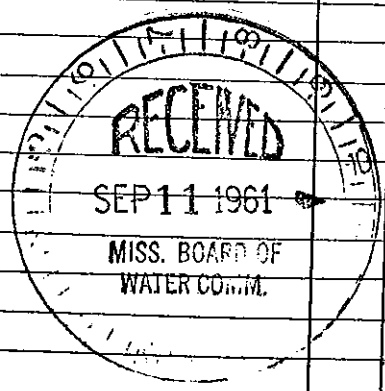 7 8
6 9
5 10
RECEIVED
SEP 11 1961
MISS. BOARD OF
WATER COMM.